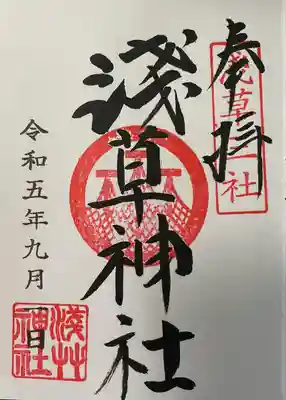 奉拝
浅草一社
淺草神社
令和五年九月一日
淺草神社